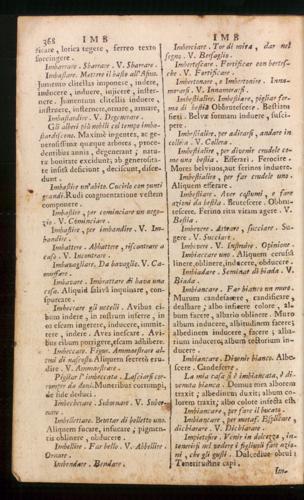 368 I M B
ficare, lorica tegere, ferreo texto
succingere.
Imbarrare. Sbarrare. V. Sbarrare.
Imbastare. Mettere il basto all'Asino.
Jumento clitellas imponere, indere,
inducere, induere, injicere, inster-
nere. Jumentum clitellis induere,
instruere, insternere, ornare, armare,
Imbastardire. V. Degenerare.
Gli alberi più nobili col tempo imba-
stardiscono. Maximè ingentes, ac ge-
nerosissimæ quæque arbores, proce-
dentibus annis, degenerant; natu-
ræ bonitate excidunt; ab generosita-
te insita desciunt, desciscunt, disce-
dunt.
Imbastire un'abito. Cucirlo con punti
grandi. Rudi coagmentatione vestem
componere.
Imbastire, per cominciare un nego-
zio. V. Cominciare.
Imbastire, per imbandire. V. Im-
bandire.
Imbattere. Abbattere, riscontrare a
caso. V. Incontrare.
Imbavagliare. Da bavaglio. V. Ca-
muffare.
Imbavare. Imbrattare di bava una
cosa. Aliquid salivâ inquinare, con-
spurcare.
Imbeccare gli uccelli. Avibus ci-
bum indere, in rostrum inserere, in
os escam ingerere, inducere, immit-
tere, indere. Aves inescare. Avi-
bus cibum porrigere, escam adhibere.
Imbeccare. Fig. Ammaestrare al-
cuno di nascosto. Aliquem secretò eru-
dire. V. Ammaestrare.
Pigliar l'imbeccata. Lasciarsi cor-
romper da doni. Muneribus corrumpi,
de fide deduci.
Imbecherare. Subornare. V. Subor-
nare.
Imbellettare. Bruttar di belletto uno.
Aliquem fucare, infucare; pigmen-
tis oblinere, obducere.
Imbellire. Far bello. V. Abbellire
Ornare.
Imbendare. Bendare.
I M B
Imberciare. Tor di mira, dar nel
segno. V. Bersaglio.
Imbertescare. Fortificar con bertes-
che. V. Fortificare.
Imbertonare, e Imbertonire. Inna-
morarsi. V. Innamorarsi.
Imbestialire. Imbestiare, pigliar for-
ma di bestia. Obbrutescere. Bestiam
fieri. Belvæ formam induere, susci-
pere.
Imbestialire, per adirarsi, andare in
collera. V. Collera.
Imbestialire, per divenire crudele co-
me una bestia. Efferari. Ferocire.
Mores belvinos, aut ferinos induere.
Imbestialire, per far crudele uno.
Aliquem efferare.
Imbestiare. Aver costumi, e fare
azioni da bestia. Brutescere. Obbru-
tescere. Ferino ritu vitam agere. V.
Bestia
Imbevere. Attrarre, succiare. Su-
gere. V. Succiare.
Imbevere. V. Infondere. Opinione.
Imbiaccare uno. Aliquem cerussâ
linere, oblinere, inducere, obducere.
Imbiadare. Seminar di biada. V.
Biada.
Imbiancare. Far bianco un muro.
Murum candefacere, candificare,
dealbare; albo inficere colore, al-
bum facere, albario oblinere. Muro
album inducere, albitudinem facere;
albedinem inducere, facere; albari-
um inducere; album tectorium in-
ducere.
Imbiancare. Divenir bianco. Albe-
scere. Candescere.
La mia casa s'è imbiancata, è di-
venuta bianca. Domus mea alborem
traxit; albedinem duxit; album co-
lorem traxit; albo colore infecta est.
Imbiancare, per fare il bucato.
Imbiancare, per metaf. Esplicare,
dichiarare. V. Dichiarare.
Impietosire. Venir in dolcezza, in-
tenerirsi nel vedere i figliuoli fare azio-
ni, che gli gusti. Dulcedine obrui;
Teneritudine capi.
Im-